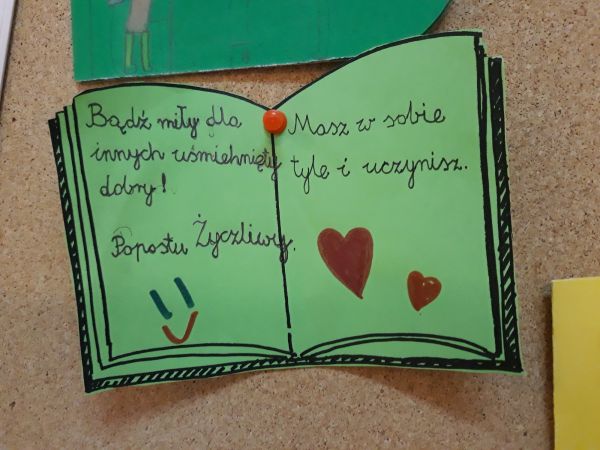 Bądź miły dla
innych uśmiehnięty
dobry!
Popostu Życzliwy.
Masz w sobie
tyle i uczynisz.